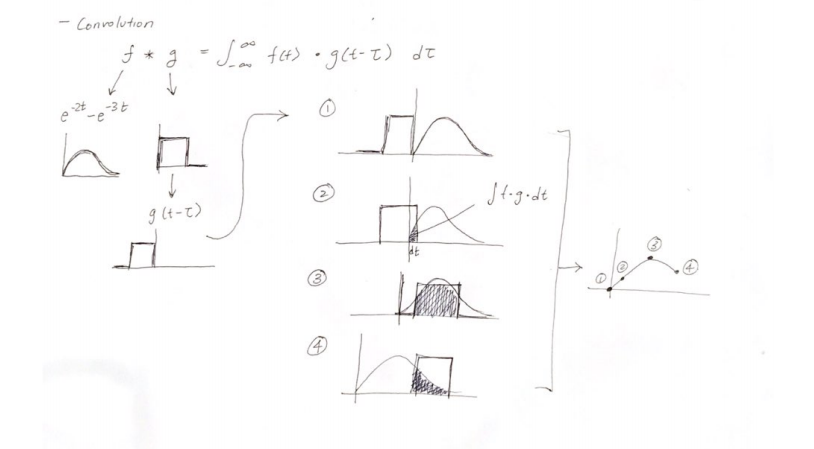 - Convolution
f * g = ∫_{-∞}^{∞} f(t) · g(t-τ) dτ
e^{-2t} - e^{-3t}
g(t-τ)
①
②
∫f·g·dt
dt
③
④
① ② ③ ④